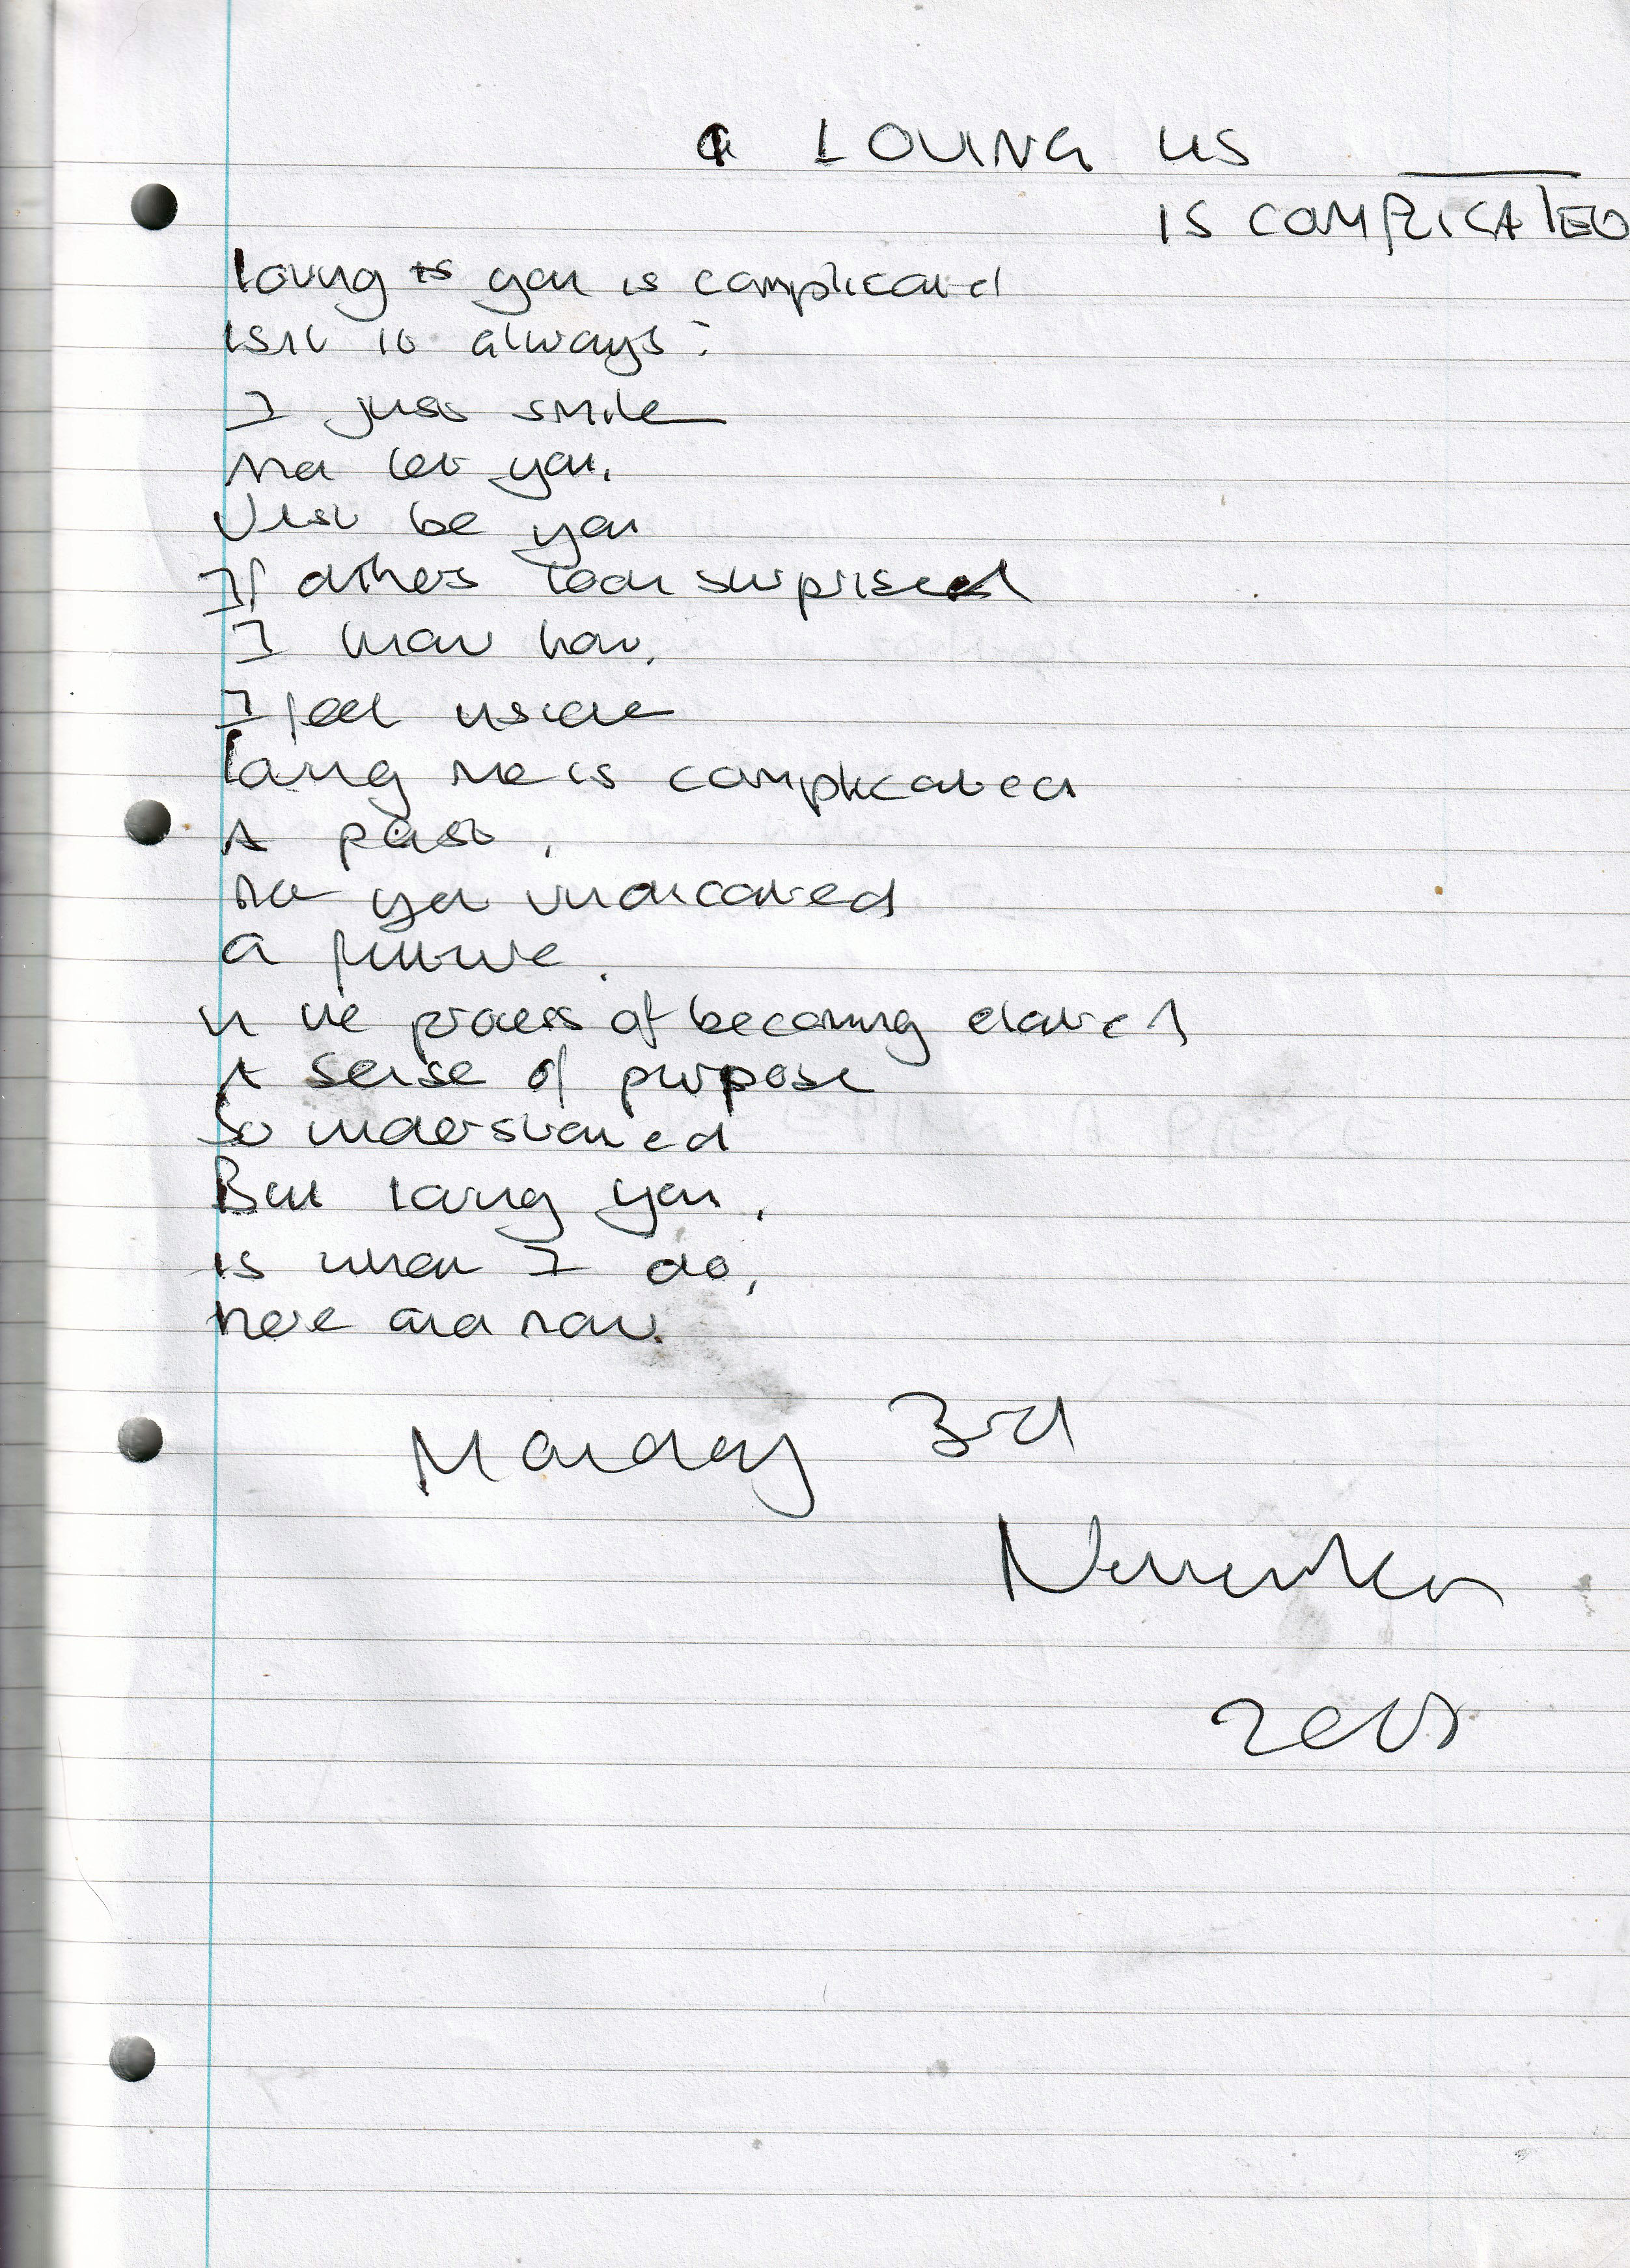 LOVING US
IS COMPLICATED
Loving you is complicated
Isn't it always?
I just smile
And let you,
Just be you
If others look surprised
I know how,
I feel inside
Loving me is complicated
A past,
not yet
a future.
In the process of becoming elated
A sense of purpose
So understated
But loving you,
is what I do,
here and now.
Monday 3rd
November